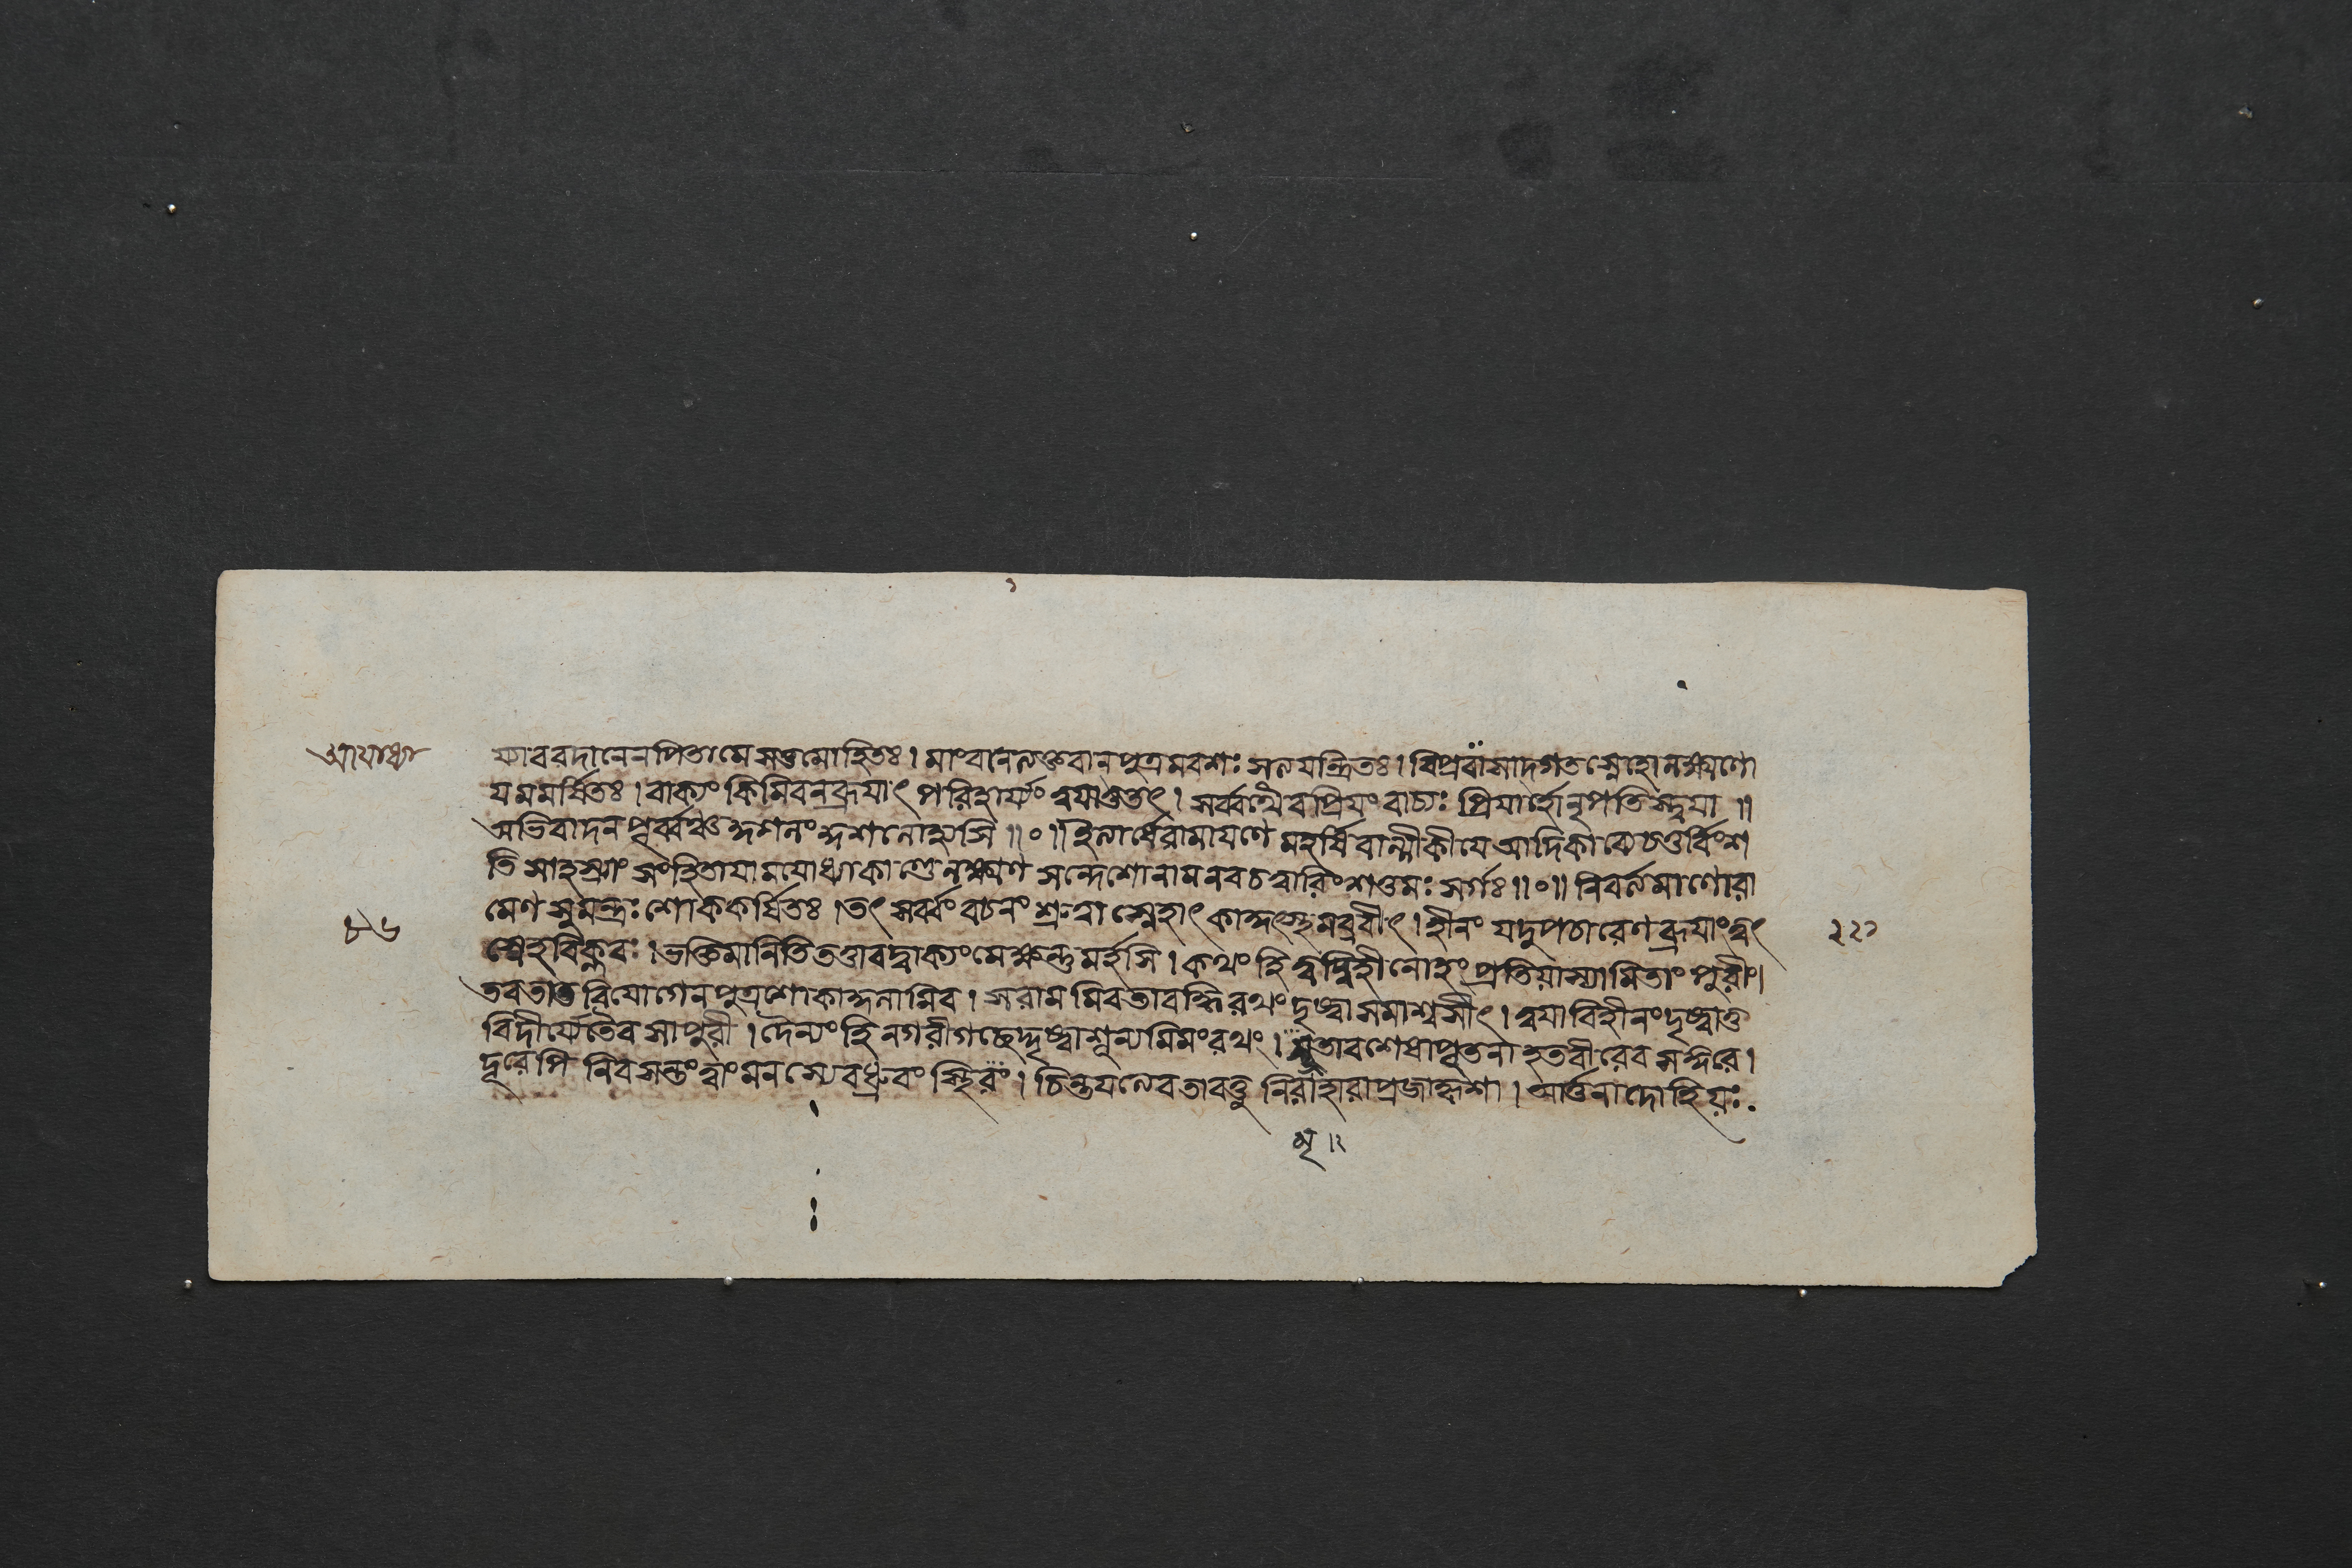 আযোধ্যা
য্যাবরদানেনপিতামে সত্ত্বমোহিতঃ। মাংবানলক্তবানপুত্রমবশঃ সত্যযন্ত্রিতঃ। বিপ্রবাসাদ্গতস্নেহোলক্ষ্মণো
যমমর্ষিতঃ। বাক্যং কিমিবনব্রূযাৎ পরিহার্য্যং ত্বযাতুতৎ। সর্ব্বথৈবপ্রিযংবাচ্যঃ প্রিযার্হোনৃপতিস্ত্বযা॥
অভিবাদনপূর্ব্বঞ্চ ॥०॥ ইত্যার্ষেরামাযণে মহর্ষিবাল্মীকীযে আদিকাব্যেচতুর্বিংশ
তিসাহস্র্যাং সংহিতাযামযোধ্যাকাণ্ডেলক্ষ্মণ সন্দেশোনামনবচত্বারিংশত্তমঃ সর্গঃ॥०॥ নিবর্ত্যমাণোরা
মেণসুমন্ত্রঃ শোককর্ষিতঃ। তৎ সর্ব্বংবচনং শ্রুত্বা স্নেহাৎ কাকুৎস্থমব্রবীৎ। হীনং যদুপচারেণব্রূযাংত্বৎ
স্নেহবিক্লবঃ। ভক্তিমানিতিতত্তাবদ্বাক্যংমেক্ষন্তুমর্হসি। কথং হি ত্বদ্বিহীনোহং প্রতিযাস্যামিতাং পুরীং।
তবতাতবিযোগেনপুত্রশোকাকুলামিব। সরামমিবতাবদ্ধিরথং দৃষ্ট্বাসমাশ্বসীৎ। ত্বযাবিহীনংদৃষ্ট্বাতু
বিদীর্য্যেতৈবসাপুরী। দৈন্যং হি নগরীগচ্ছেদ্দৃষ্ট্বাশূন্যমিমংরথং। সূতাবশেষাপৃতনা হতবীরেবমন্দিরে।
দূরেপি নিবসন্তংত্বাং মনস্যেবধ্রুবং স্থিরং। চিন্তযন্ত্যেবতাবত্তু নিরাহারাপ্রজাকৃশা। আর্ত্তনাদোহিযঃ
৮৬
২২১